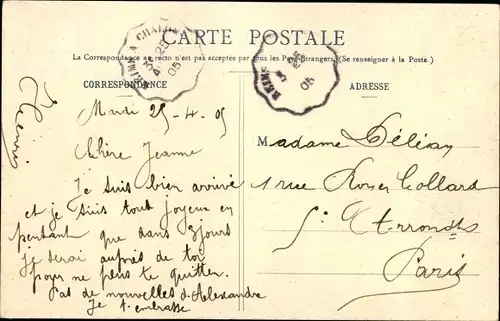 CARTE POSTALE
La Correspondance au recto n'est pas acceptée par tous les Pays Etrangers (Se renseigner à la Poste.)
CORRESPONDANCE
ADRESSE
REIMS A CHALONS
25
4
05
REIMS
25
05
Mardi 25-4-05
Chère Jeanne
Je suis bien arrivé
et je suis tout joyeux en
pensant que dans 3 jours
je serai auprès de toi
pour ne plus te quitter.
Pas de nouvelles d'Alexandre
Je t'embrasse
Henri
Madame
1 rue Royer Collard
5e Arrondt
Paris